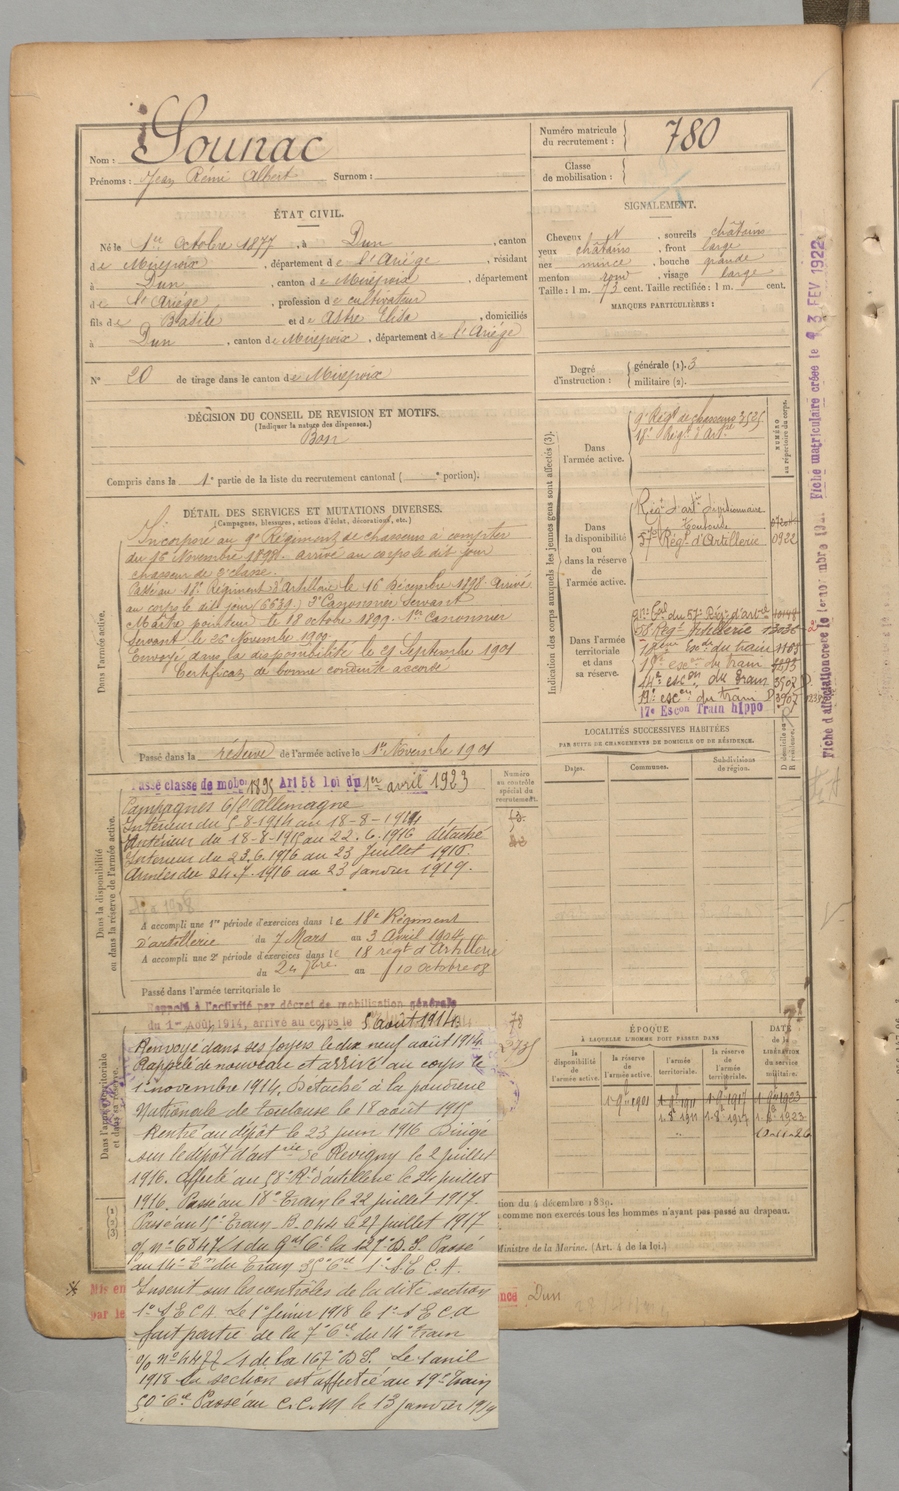 Nom : Sounac
Prénoms : Jean Rémi Albert Surnom :
Numéro matricule du recrutement : 780
Classe de mobilisation :
ÉTAT CIVIL.
Né le 1er Octobre 1877, à Dun, canton
de Mirepoix, département de l'Ariège, résidant
à Dun, canton de Mirepoix, département
de l'Ariège, profession de cultivateur
fils de Basile et de Astre Elisa, domiciliés
à Dun, canton de Mirepoix, département de l'Ariège
N° 20 de tirage dans le canton de Mirepoix
SIGNALEMENT.
Cheveux N, sourcils châtains
yeux châtains, front large
nez mince, bouche grande
menton rond, visage large
Taille : 1 m. 73 cent. Taille rectifiée : 1 m. cent.
MARQUES PARTICULIÈRES :
Degré d'instruction : générale (1). 3
militaire (2).
DÉCISION DU CONSEIL DE REVISION ET MOTIFS.
(Indiquer la nature des dispenses.)
Bon
Compris dans la 1e partie de la liste du recrutement cantonal ( e portion).
DÉTAIL DES SERVICES ET MUTATIONS DIVERSES.
(Campagnes, blessures, actions d'éclat, décorations, etc.)
Dans l'armée active.
Incorporé au 9e Régiment de chasseurs à compter
du 16 Novembre 1898. arrivé au corps le dit jour
chasseur de 2e classe.
Passé au 18e Régiment d'Artillerie le 16 Décembre 1898 Arrivé
au corps le dit jour (6639) 2e Canonnier Servant
Maître pointeur le 18 octobre 1899. 1er Canonnier
Servant le 26 Novembre 1900
Envoyé dans la disponibilité le 21 Septembre 1901
Certificat de bonne conduite accordé
Passé dans la réserve de l'armée active le 1er Novembre 1901
Indication des corps auxquels les jeunes gens sont affectés (3).
NUMÉRO au répertoire du corps.
Dans l'armée active.
9e Régt de chasseurs 3525
18e Régt d'Artie
Dans la disponibilité ou dans la réserve de l'armée active.
Régt d'artie
Toulouse
57e Régt d'Artillerie 0922
Dans l'armée territoriale et dans sa réserve.
du 57e Régt d'artie
58 Régt Artillerie 13036
18e escon du train
14e escon du Train 3907
19e escon du train 3907
17e Escon Train hippo
Fiche matriculaire créée le 23 FEV 1922
LOCALITÉS SUCCESSIVES HABITÉES
PAR SUITE DE CHANGEMENTS DE DOMICILE OU DE RÉSIDENCE.
Dates. Communes. Subdivisions de région.
D domicile ou R résidence.
Dans la disponibilité ou dans la réserve de l'armée active.
Numéro au contrôle spécial du recrutement.
Passé classe de mobon 1895 Art 58 loi du 1er avril 1923
Campagnes c/ l'allemagne
Intérieur du 5-8-1914 au 18-8-1914
Intérieur du 18-8-1915 au 22.6.1916 détaché
Intérieur du 23.6.1916 au 23 Juillet 1916.
Armées du 24.7.1916 au 23 janvier 1919.
A accompli une 1re période d'exercices dans le 18e Régiment
d'artillerie du 7 Mars au 3 Avril 1904
A accompli une 2e période d'exercices dans le 18 régt d'Artillerie
du 24 7bre au 10 octobre 08
Passé dans l'armée territoriale le
Rappelé à l'activité par décret de mobilisation générale
du 1er Août 1914, arrivé au corps le 5 août 1914
Dans l'armée territoriale et dans sa réserve.
Renvoyé dans ses foyers le dix neuf août 1914
Rappelé de nouveau et arrivé au corps le
1er novembre 1914, Détaché à la poudrerie
Nationale de Toulouse le 18 août 1915
Rentré au dépôt le 23 juin 1916 Dirigé
sur le dépôt d'artie de Revigny le 2 juillet
1916. affecté au 58e Rt d'artillerie le 24 juillet
1916. Passé au 18e Train le 22 juillet 1917.
Passé au 15e Train B.044 le 27 juillet 1917
o/ n° 6847/1 du Gal Ct la 127e D.I. Passé
au 14e En du Train 35e Cie 1e S.E.C.A.
Inscrit sur les contrôles de la dite section
1e S.E.C.A. Le 1er février 1918 le 1e S.E.C.A
fait partie de la 7e Cie du 14e train
o/o n° 4477/1 de la 167e D.I. Le 1 avril
1918 la section est affectée au 19e Train
50e Cie Passé au C.C.M le 13 janvier 1919
ÉPOQUE
À LAQUELLE L'HOMME DOIT PASSER DANS
la disponibilité de l'armée active. la réserve de l'armée active. l'armée territoriale. la réserve de l'armée territoriale.
DATE de la LIBÉRATION du service militaire.
1-9bre 1901 1-9bre 1911 1-9bre 1917 1-9bre 1923
1-8bre 1911 1-8bre 1917 1-8bre 1923
10-11-26
tion du 4 décembre 1889.
comme non exercés tous les hommes n'ayant pas passé au drapeau.
Ministre de la Marine. (Art. 4 de la loi.)
Mis en
par le
Dun